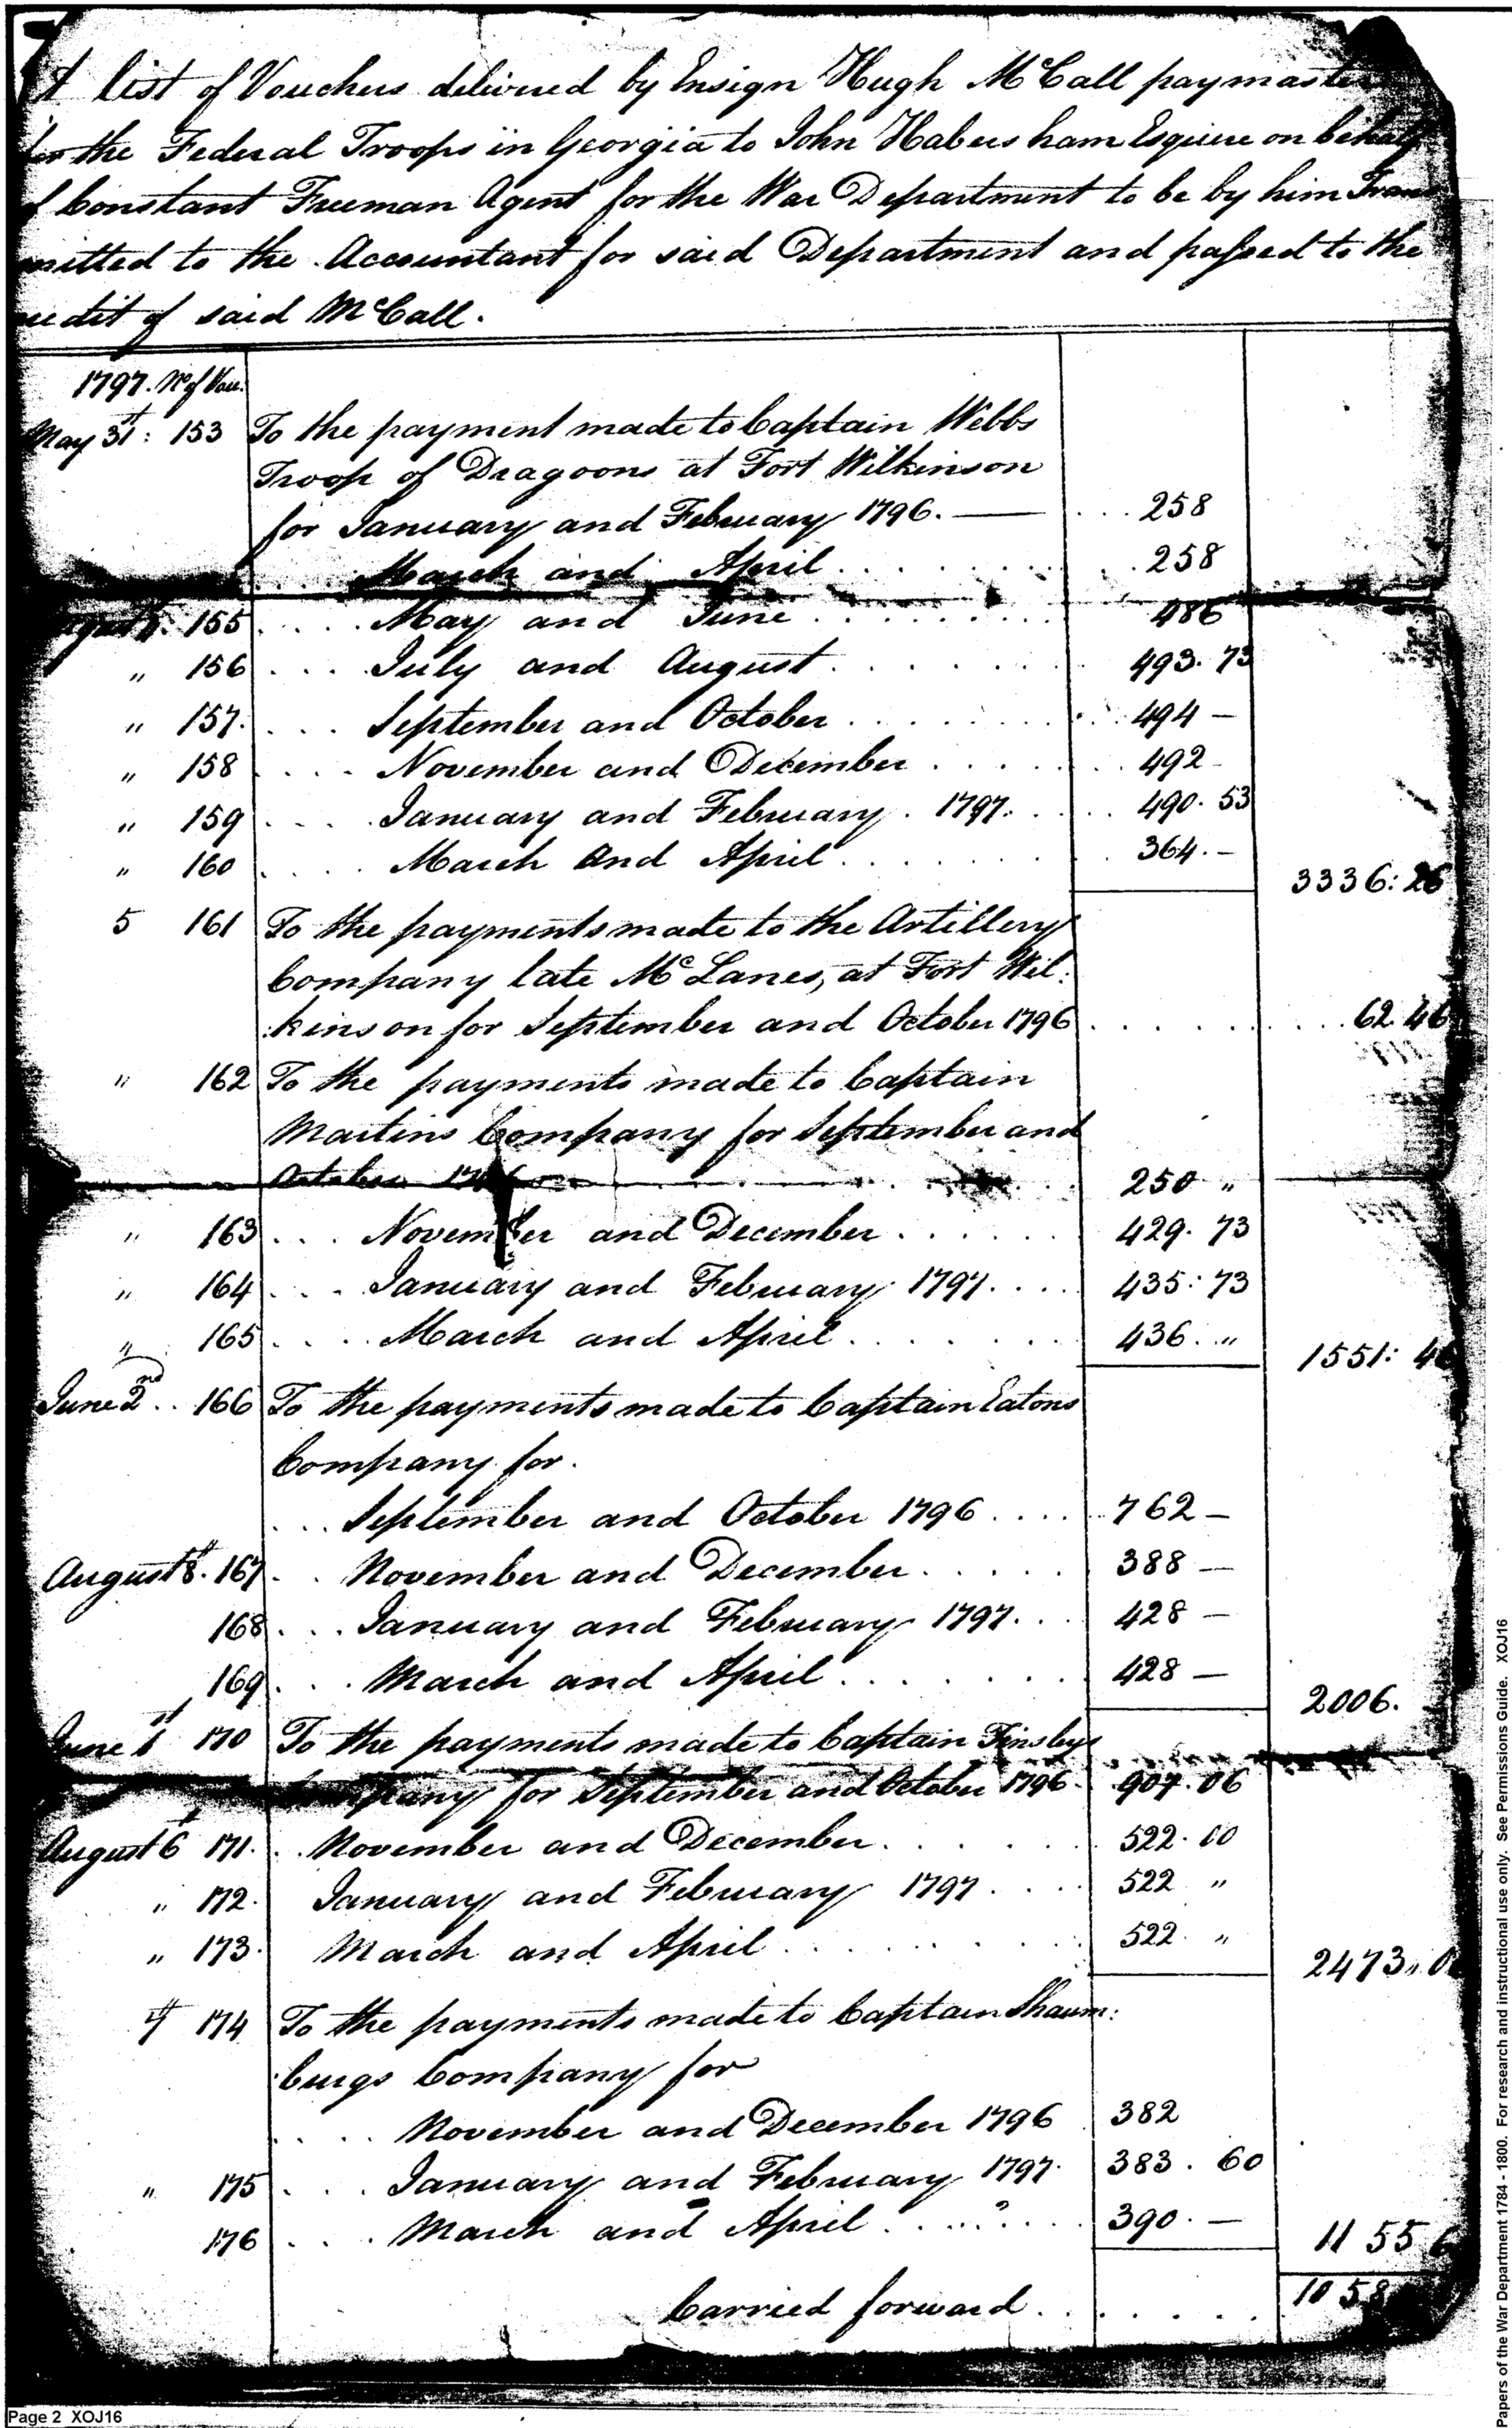 A list of Vouchers delivered by Ensign Hugh McCall paymaster
for the Federal Troops in Georgia to John Habersham Esquire on behalf
of Constant Freeman Agent for the War Department to be by him Trans
mitted to the Accountant for said Department and passed to the
credit of said McCall.
1797. No of Vou.
May 31st: 153 To the payment made to Captain Webbs
Troop of Dragoons at Fort Wilkinson
for January and February 1796. — . . . 258
. . . March and April . . . . . . . . 258
August 155 . . . . May and June . . . . . . . . . 486
" 156 . . . . July and August . . . . . . . . 493. 73
" 157. . . . September and October . . . . . . . 494 —
" 158 . . . . November and December . . . . . . 492 -
" 159 . . . . January and February. 1797. . . . 490. 53
" 160 . . . . March and April . . . . . . . 364. —
3336: 26
5 161 To the payments made to the Artillery
Company late McLanes, at Fort Wil:
:kinson for September and October 1796 . . . . . . . . 62.46
" 162 To the payments made to Captain
Martins Company for September and
October 1796 250 "
" 163 . . . November and December . . . . . . 429. 73
" 164 . . . January and February 1797. . . . 435: 73
" 165 . . . . March and April . . . . . . . 436. "
1551: 46
June 2nd . . 166 To the payments made to Captain Eatons
Company for.
. . . September and October 1796 . . . . 762 —
August 8th. 167 . . November and December . . . . . 388 —
168 . . . January and February 1797. . . 428 —
169 . . . March and April . . . . . . . 428 —
2006.
June 1st 170 To the payments made to Captain Tinsleys
Company for September and October 1796 907.06
August 6th 171. . . November and December . . . . . . 522. 00
" 172. January and February 1797 . . . . 522 "
" 173. March and April . . . . . . . . 522. "
2473,, 0
174 To the payments made to Captain Shaum:
:burgs Company for
. . . . November and December 1796 382
" 175 . . . January and February 1797. 383. 60
176 . . . March and April . . . " . . . . 390. —
1155 6
Carried forward . . . . . . 1058
Page 2 XOJ16
Papers of the War Department 1784 - 1800. For research and instructional use only. See Permissions Guide. XOJ16